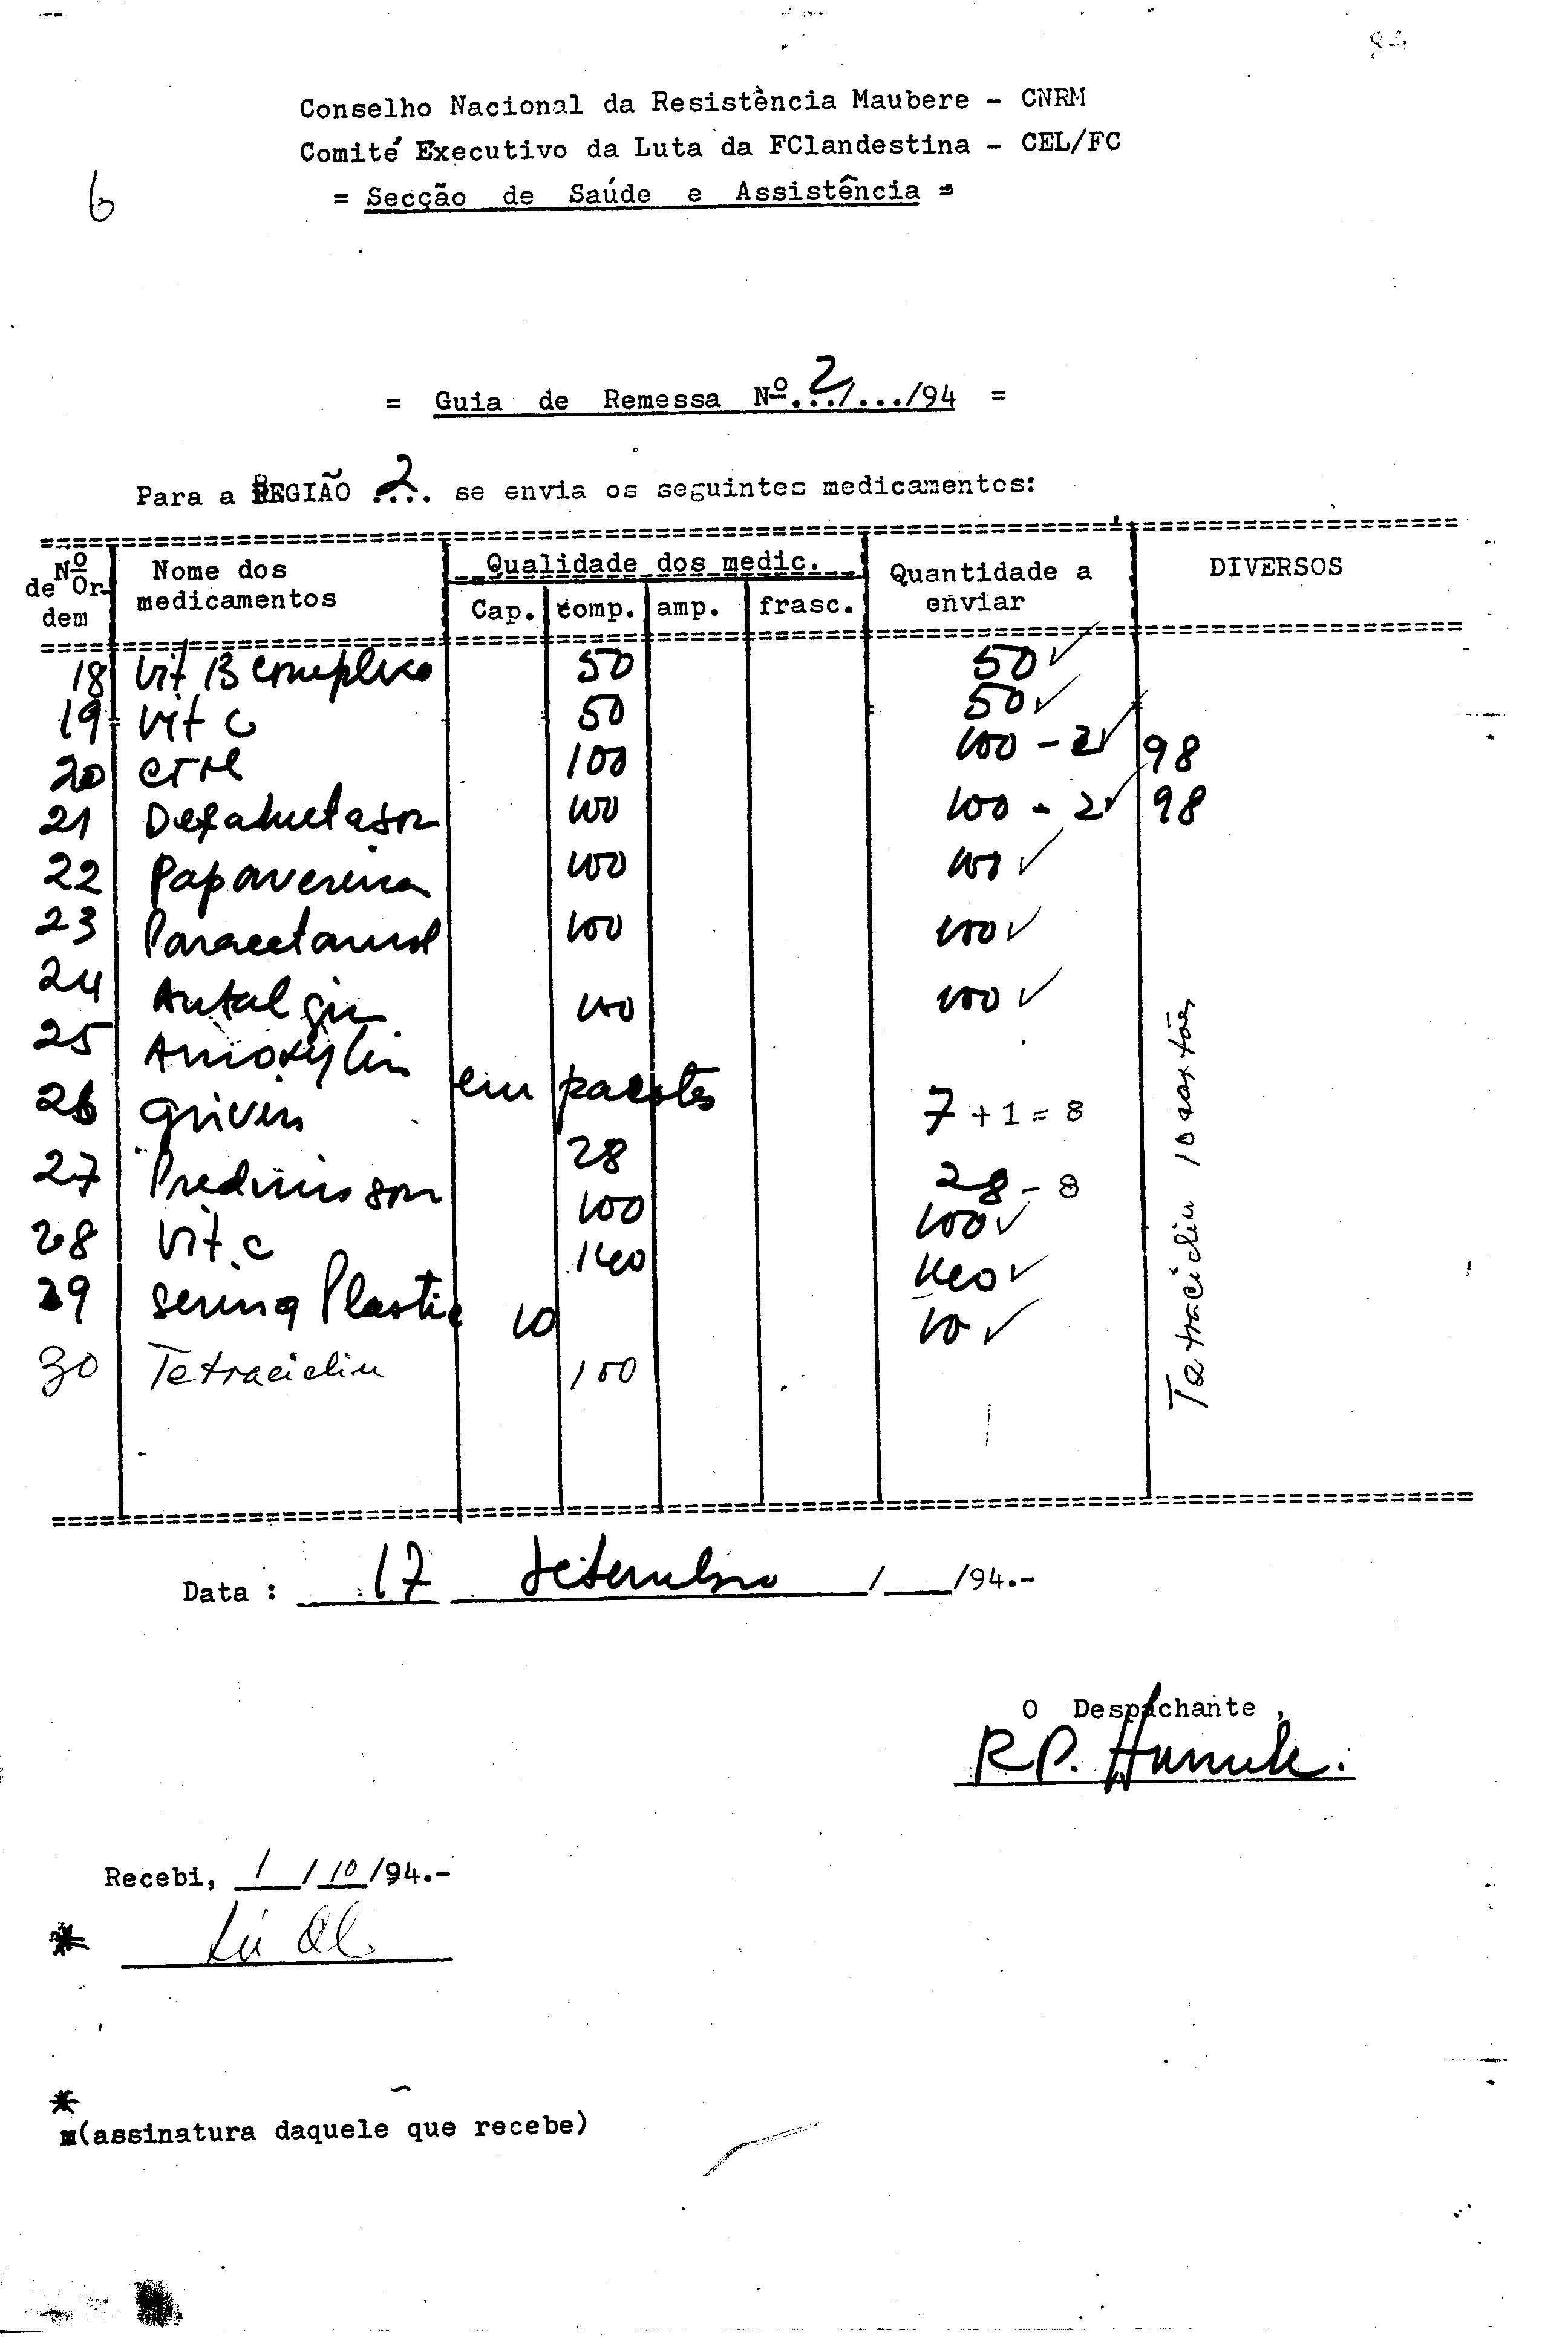 Conselho Nacional da Resistência Maubere - CNRM
Comité Executivo da Luta da FClandestina - CEL/FC
6
= Secção de Saúde e Assistência =
= Guia de Remessa Nº 2.../.../94 =
Para a REGIÃO 2.... se envia os seguintes medicamentos:
Nº de Or- dem | Nome dos medicamentos | Qualidade dos medic. | Quantidade a enviar | DIVERSOS
Cap. | comp. | amp. | frasc.
18 Vit B complexo 50 50 ✓
19 Vit C 50 50 ✓
20 CTM 100 100 - 2 ✓ 98
21 Dexametason 100 100 - 2 ✓ 98
22 Papaverina 100 100 ✓
23 Paracetamol 100 100 ✓
24 Antalgin 100 100 ✓
25 Amoxylin em pacotes 7 + 1 = 8
26 Grivin 28 28 - 8
27 Predinisson 100 100 ✓
28 Vit. c 140 140 ✓
29 Sering Plastic 10 10 ✓
30 Tetraciclin 100
Tetraciclin 10
Data : 17 Setembro / /94.-
O Despachante ,
RP.
Recebi, 1 / 10 /94.-
*
*
(assinatura daquele que recebe)